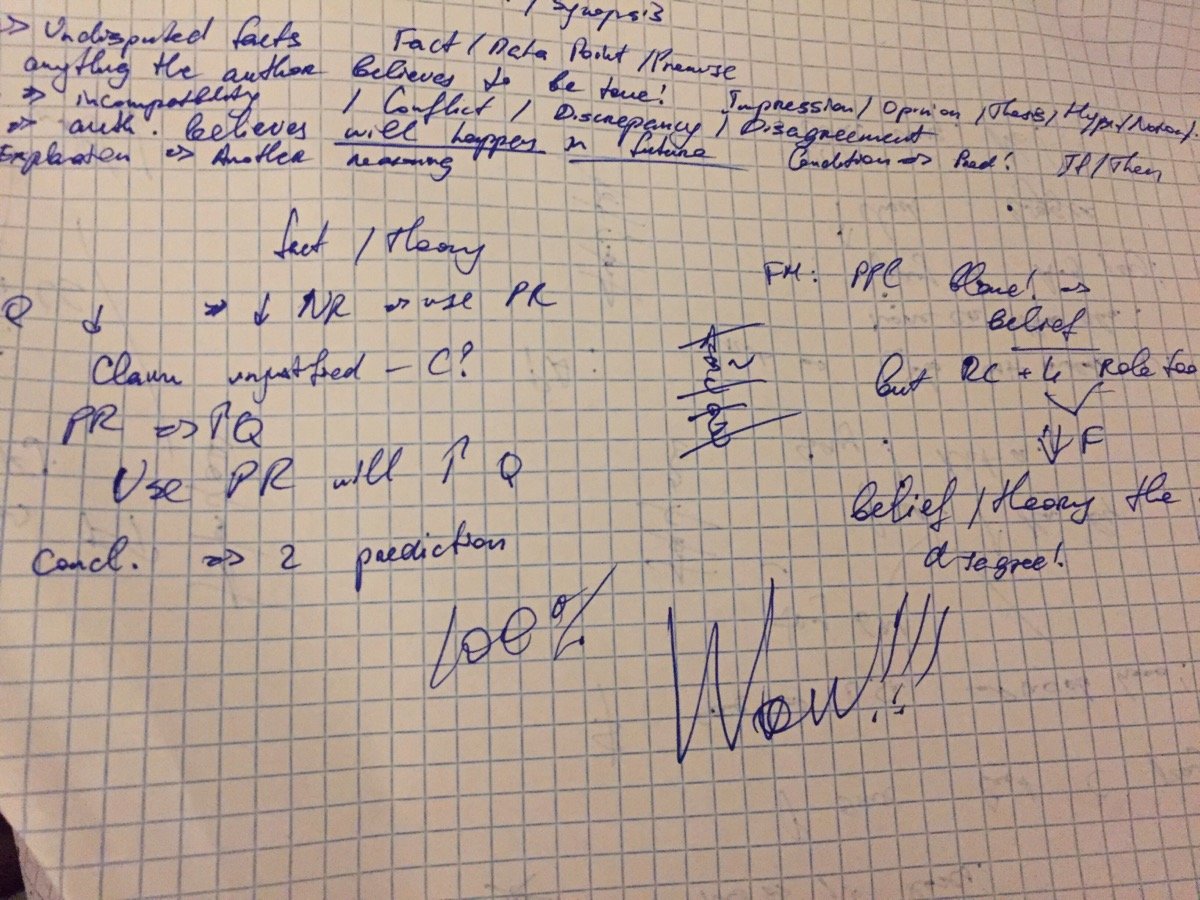 / Synopsis
=> Undisputed facts Fact / Data Point / Premise
anything the author believes to be true! Impression / Opinion / Thesis / Hyp / Notion /
=> incompatibility / Conflict / Discrepancy / Disagreement
=> auth. believes will happen in future Condition => Pred! If / Then
Explanation => Another reasoning
fact / theory
Q ↓ ↓ NR => use PR
Claim unjustified - C?
PR => ↑Q
Use PR will ↑ Q
Concl. => 2 prediction
100%
FM: PPL Blame! =>
belief
but RC + 4 Role too
⇓ F
belief / theory the
disagree!
Wow!!!!